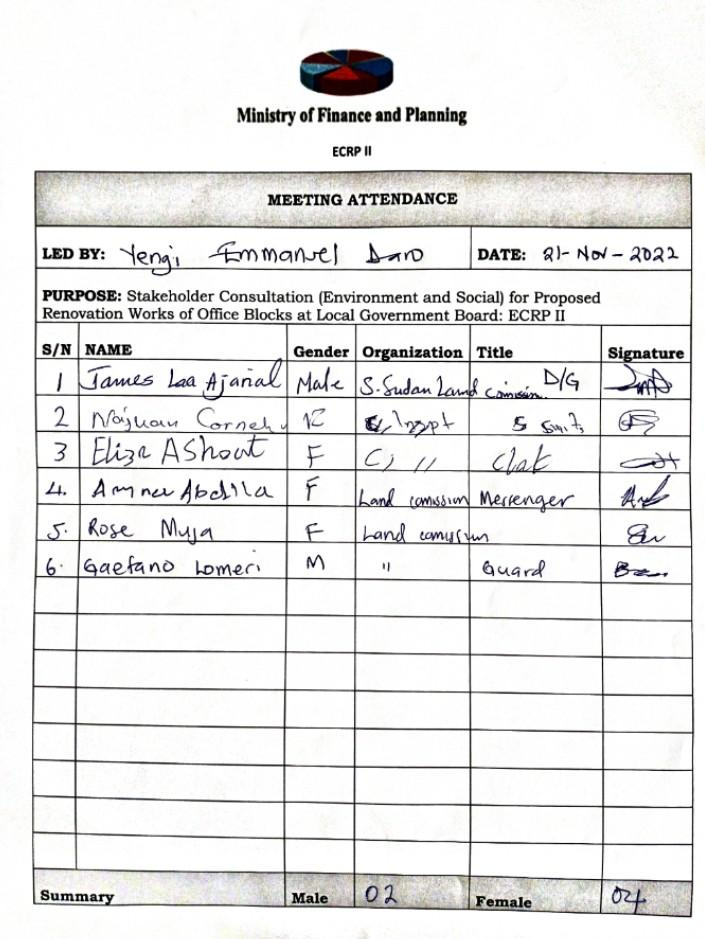 Ministry of Finance and Planning
ECRP II
MEETING ATTENDANCE
LED BY: Yengi Emmanuel Daro DATE: 21-Nov-2022
PURPOSE: Stakeholder Consultation (Environment and Social) for Proposed
Renovation Works of Office Blocks at Local Government Board: ECRP II
S/N NAME Gender Organization Title Signature
1 James Laa Ajanal Male S.Sudan Land D/G
2
3 Eliza AShout F
4. Abdila F Land comission Messenger
5. Rose Muja F Land
6. Gaetano Lomeri M " Guard
Summary Male 02 Female 04